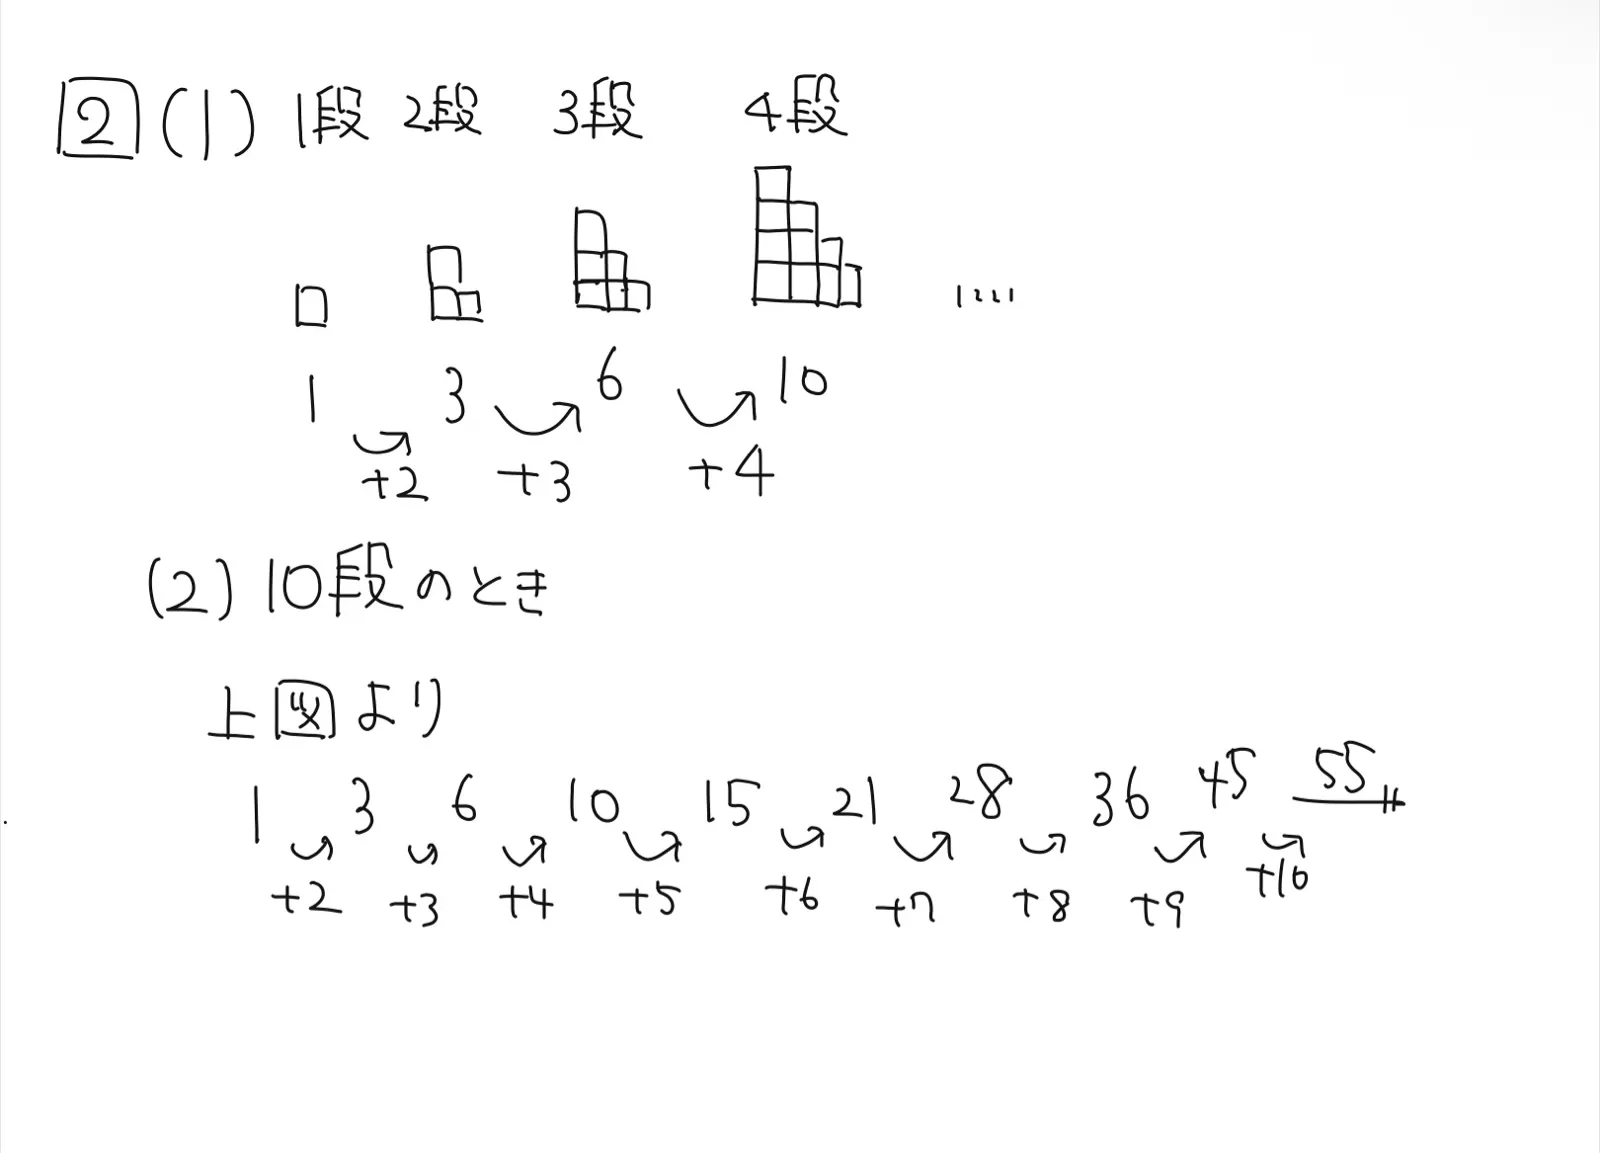 2 (1) 1段 2段 3段 4段
1 3 6 10
+2 +3 +4
(2) 10段のとき
上図より
1 3 6 10 15 21 28 36 45 55
+2 +3 +4 +5 +6 +7 +8 +9 +10